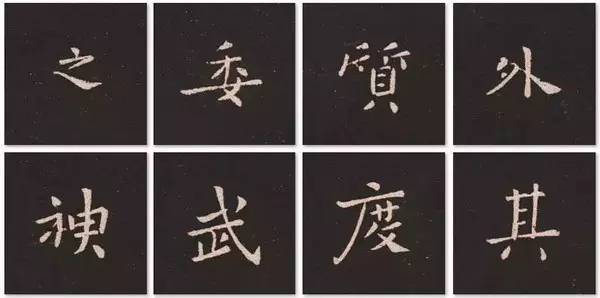 之委質外
神武度其